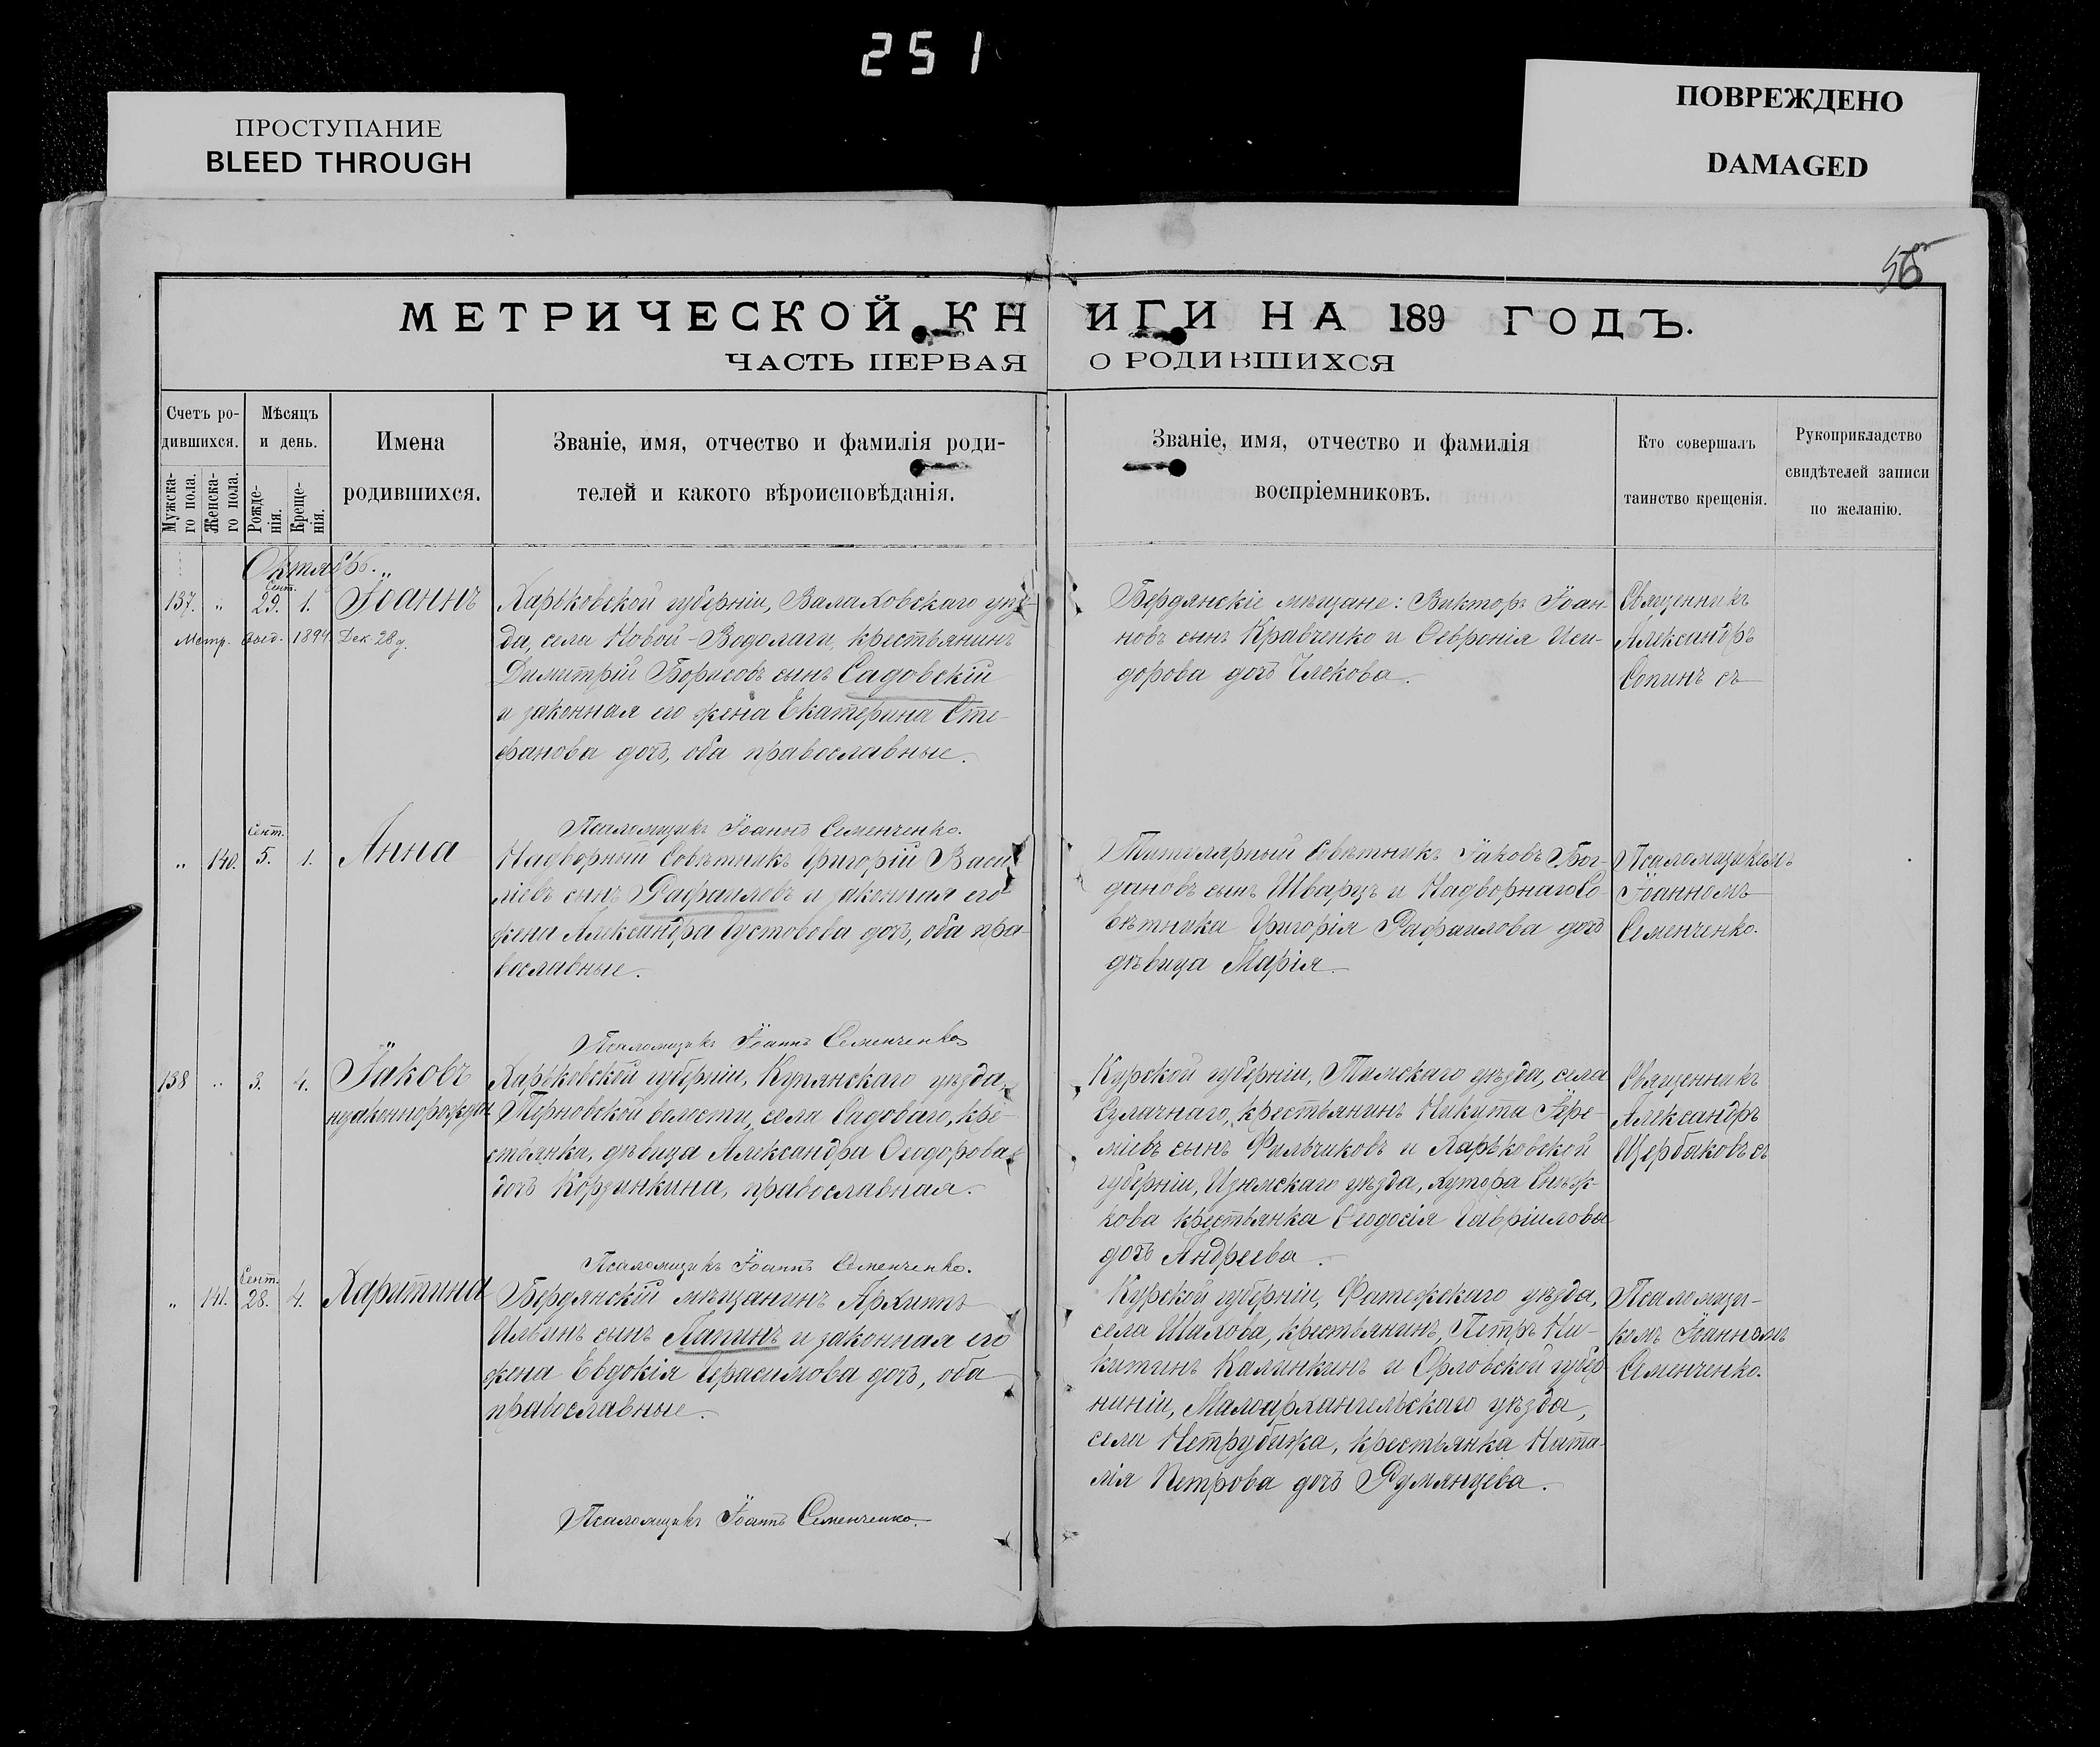 251
ПРОСТУПАНИЕ
BLEED THROUGH
ПОВРЕЖДЕНО
DAMAGED
МЕТРИЧЕСКОЙ КНИГИ НА 189 ГОДЪ.
ЧАСТЬ ПЕРВАЯ О РОДИВШИХСЯ
Счетъ ро-
дившихся.
Мужска-
го пола.
Женска-
го пола.
Мѣсяцъ
и день.
Рожде-
нія.
Креще-
нія.
Имена
родившихся.
Званіе, имя, отчество и фамилія роди-
телей и какого вѣроисповѣданія.
Званіе, имя, отчество и фамилія
воспріемниковъ.
Кто совершалъ
таинство крещенія.
Рукоприкладство
свидѣтелей записи
по желанію.
Октябрь.
137. „ Сент. 29. 1. Іоаннъ
Метр. выд. 1894 Дек 28 д.
Харьковской губерніи, Валковскаго уѣз-
да, села Новой-Водолаги, крестьянинъ
Димитрій Борисовъ сынъ Садовскій
и законная его жена Екатерина Сте-
фанова дочь, оба православные.
Бердянскіе мѣщане: Викторъ Іоан-
новъ сынъ Кравченко и Февронія Иси-
дорова дочь
Священникъ
Александръ
Сопинъ съ
Псаломщикъ Іоаннъ Семенченко.
„ 140. Сент. 5. 1. Анна
Надворный Совѣтникъ Григорій Васи-
ліевъ сынъ Рафаиловъ и законная его
жена Александра Густовова дочь, оба пра-
вославные.
Титулярный Совѣтникъ Іаковъ Бог-
дановъ сынъ Шварцъ и Надворнаго Со-
вѣтника Григорія Рафаилова дочь
дѣвица Марія.
Псаломщикомъ
Іоанномъ
Семенченко.
Псаломщикъ Іоаннъ Семенченко
138 „ 3. 4. Іаковъ
незаконнорожден
Харьковской губерніи, Купянскаго уѣзда,
Терновской волости, села Садоваго, кре-
стьянка, дѣвица Александра Феодорова
дочь Корзинкина, православная.
Курской губерніи, Тимскаго уѣзда, села
крестьянинъ Никита Іере-
міевъ сынъ Фильчиковъ и Харьковской
губерніи, Изюмскаго уѣзда, хутора Снѣж-
кова крестьянка Феодосія Гавріилова
дочь Андреева.
Священникъ
Александръ
Щербаковъ съ
Псаломщикъ Іоаннъ Семенченко.
„ 141. Сент. 28. 4. Харитина
Бердянскій мѣщанинъ Архиппъ
Ильинъ сынъ Лапинъ и законная его
жена Евдокія Герасимова дочь, оба
православные.
Курской губерніи, Фатежскаго уѣзда,
села Шахова, крестьянинъ, Петръ Ни-
китинъ Калинкинъ и Орловской губер-
ниніи, Малоархангельскаго уѣзда,
села Нетрубежа, крестьянка Ната-
лія Петрова дочь Румянцева.
Псаломщи-
комъ Іоанномъ
Семенченко.
Псаломщикъ Іоаннъ Семенченко.